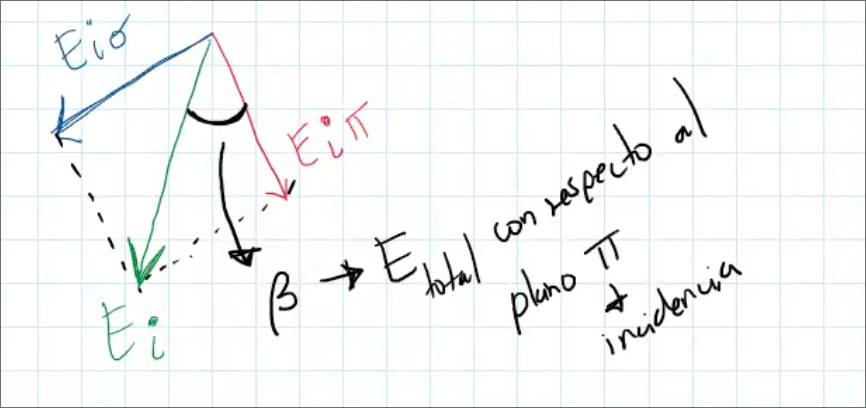 Eiσ
Eiπ
Ei
β → E total con respecto al
plano π
incidencia